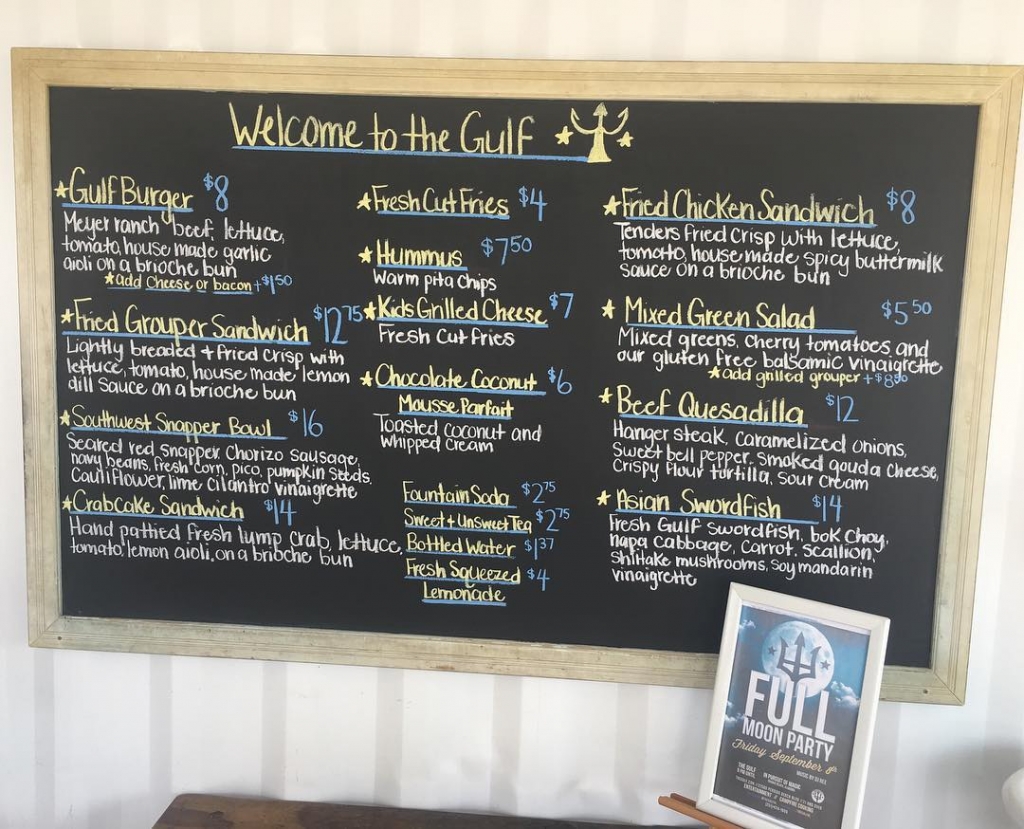 Welcome to the Gulf
Gulf Burger $8
Meyer ranch beef, lettuce,
tomato, house made garlic
aioli on a brioche bun
add cheese or bacon +$1.50
Fried Grouper Sandwich $12.75
Lightly breaded + fried crisp with
lettuce, tomato, house made lemon
dill sauce on a brioche bun
Southwest Snapper Bowl $16
Seared red snapper, Chorizo sausage,
navy beans, fresh corn, pico, pumpkin seeds,
Cauliflower, lime cilantro vinaigrette
Crabcake Sandwich $14
Hand pattied fresh lump crab, lettuce,
tomato, lemon aioli, on a brioche bun
Fresh Cut Fries $4
Hummus $7.50
Warm pita chips
Kids Grilled Cheese $7
Fresh Cut Fries
Chocolate Coconut $6
Mousse Parfait
Toasted coconut and
whipped cream
Fountain Soda $2.75
Sweet + UnSweet Tea $2.75
Bottled Water $1.37
Fresh Squeezed $4
Lemonade
Fried Chicken Sandwich $8
Tenders fried crisp with lettuce,
tomato, house made spicy buttermilk
sauce on a brioche bun
Mixed Green Salad $5.50
Mixed greens, cherry tomatoes and
our gluten free balsamic vinaigrette
add grilled grouper +$8.00
Beef Quesadilla $12
Hanger steak, caramelized onions,
Sweet bell pepper, smoked gouda cheese,
Crispy flour tortilla, sour cream
Asian Swordfish $14
Fresh Gulf swordfish, bok choy,
napa cabbage, carrot, scallion,
shiitake mushrooms, soy mandarin
vinaigrette
FULL
MOON PARTY
Friday September 8th
THE GULF
IN PURSUIT OF MAGIC
MUSIC BY DJ REZ
ENTERTAINMENT
CAMPFIRE COOKING